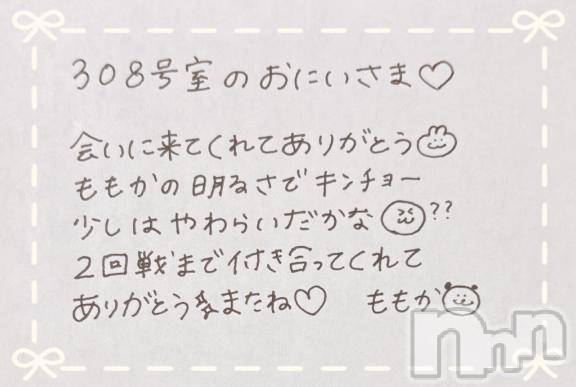 308号室のおにいさま♡
会いに来てくれてありがとう
ももかの明るさでキンチョー
少しはやわらいだかな??
2回戦まで付き合ってくれて
ありがとう またね♡ ももか
nnn